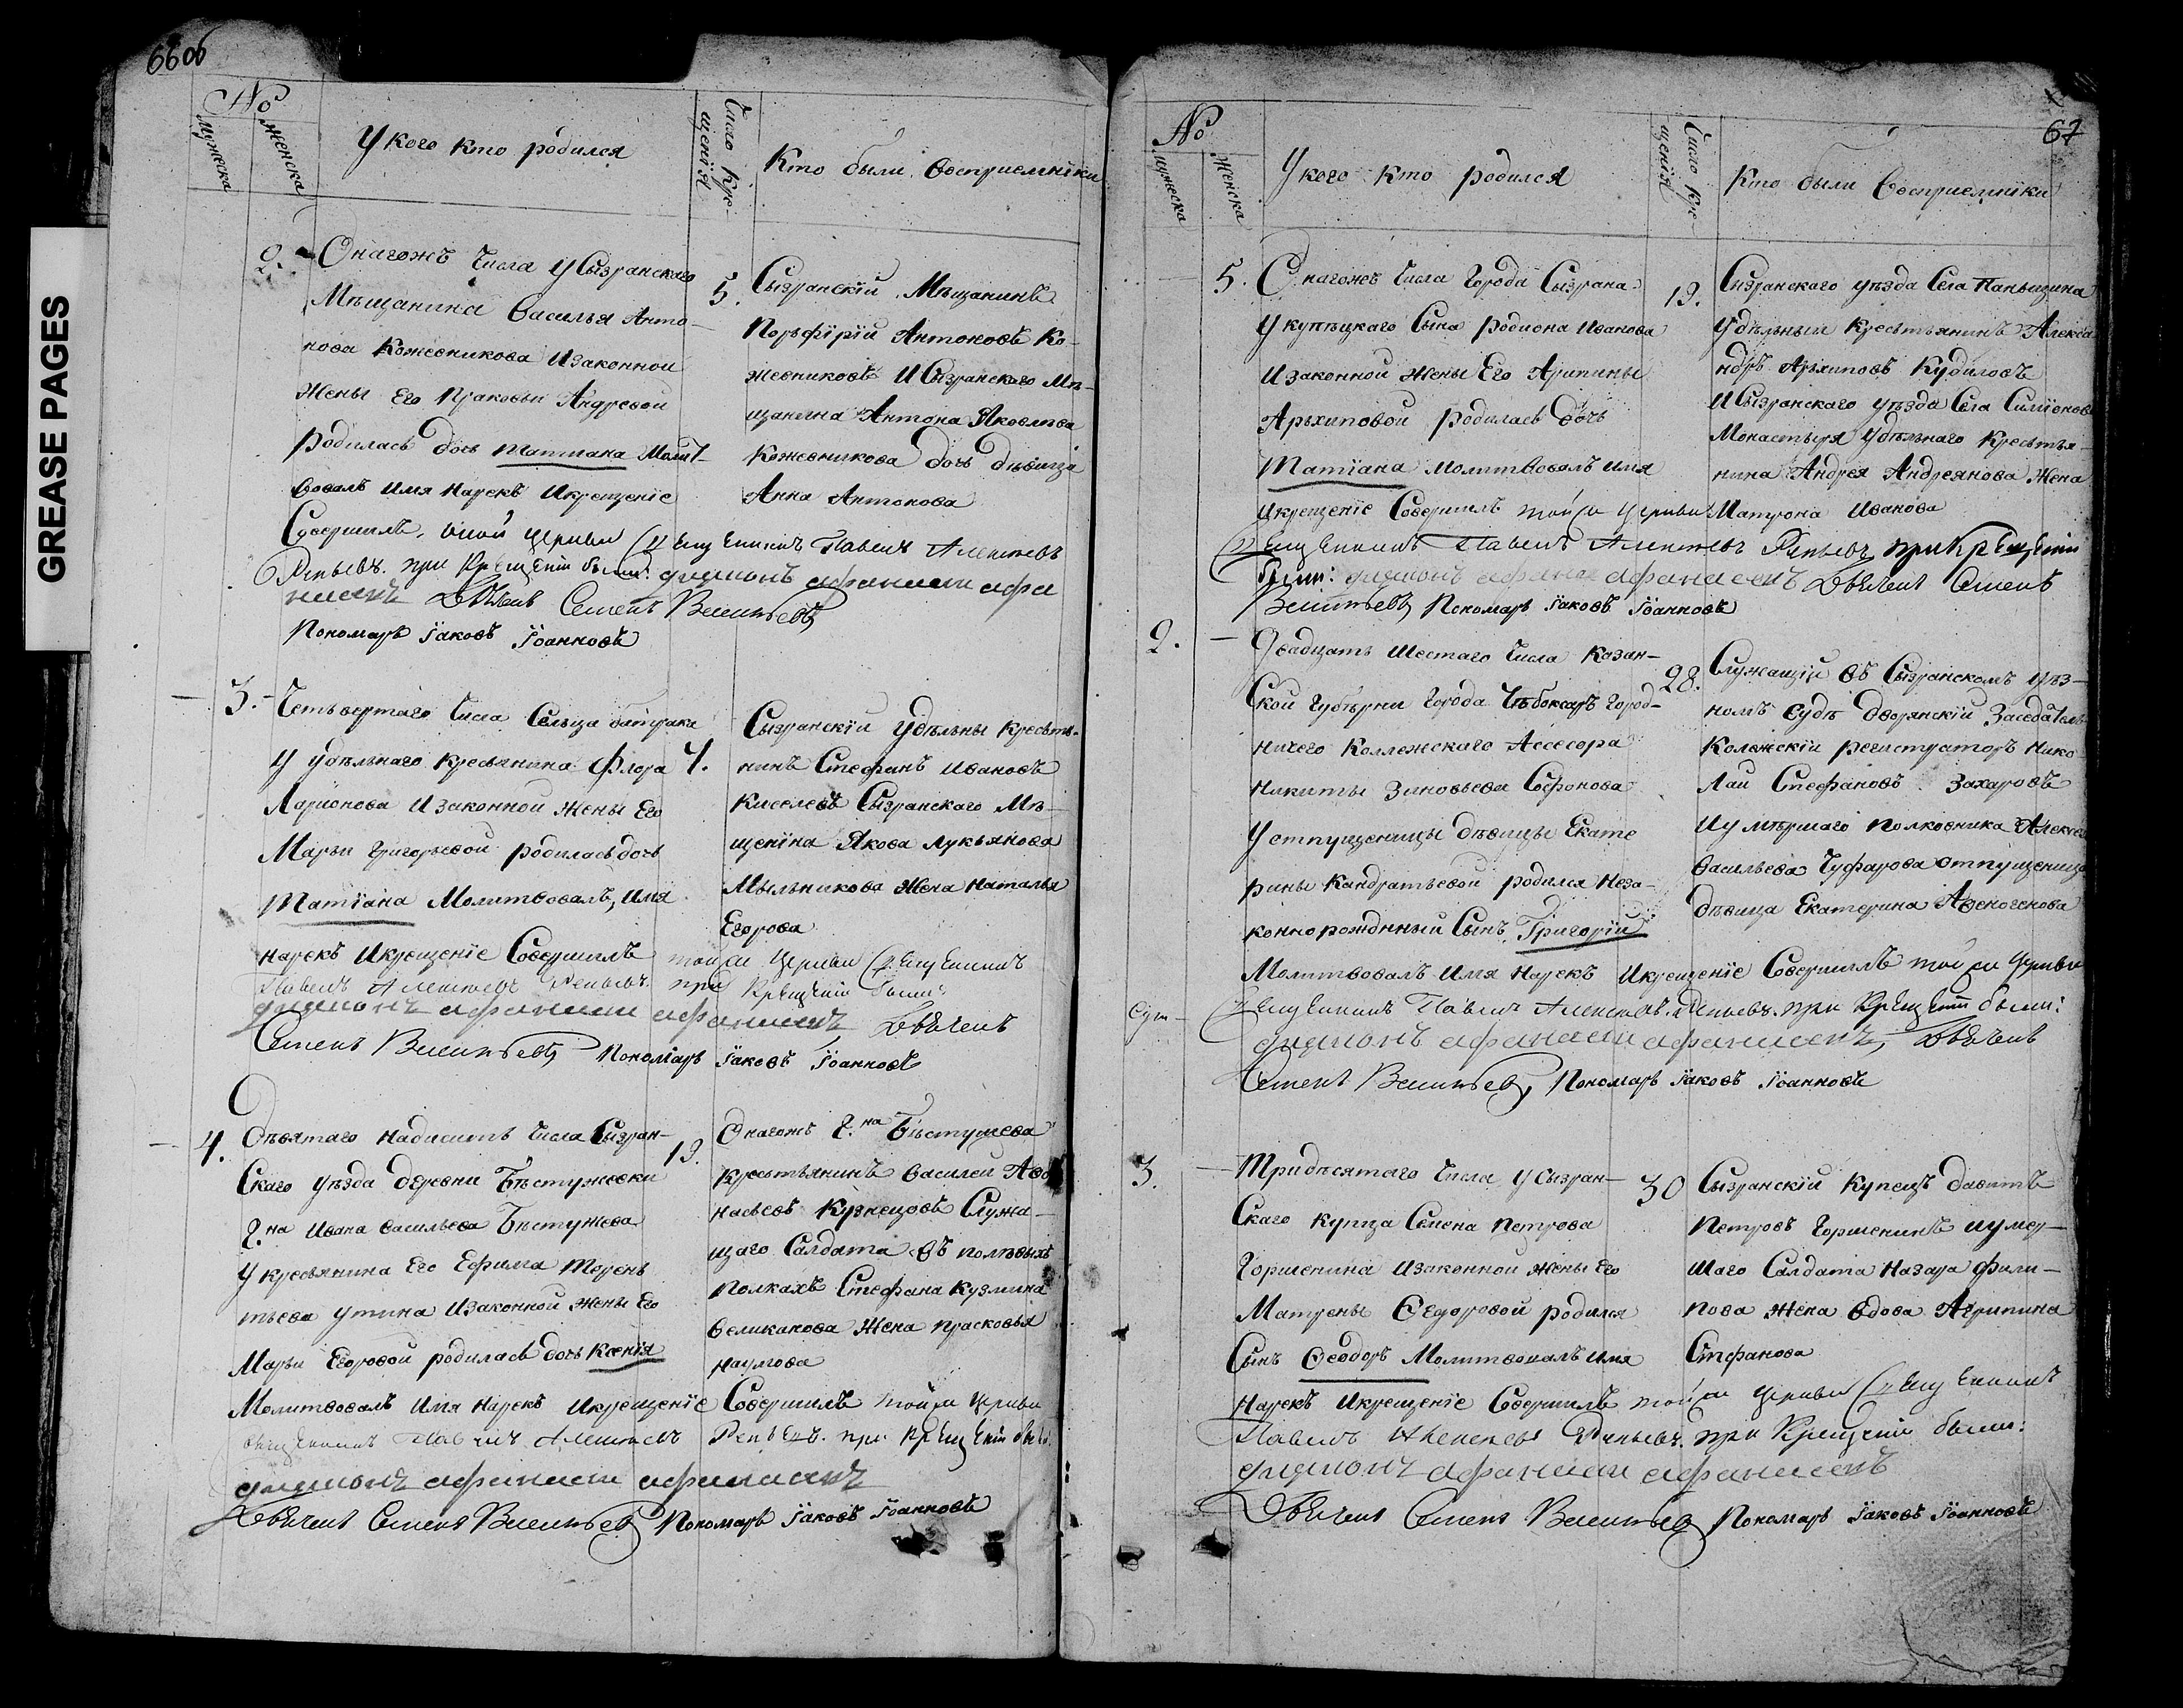 66 об
№
Мужеска
Женска
У кого кто родился
Число Кре-
щенія
Кто были Восприемники
2.
Онагожъ Числа У Сызранскаго
Мѣщанина Василья Анто-
нова Кожевникова Изаконной
Жены Его Прасковьи Андревой
родилась дочь Татиана Молит-
вовалъ Имя Нарекъ Икрещеніе
Совершилъ, оной церкви Священникъ Павелъ Алексеевъ
Репьевъ. при Крещеніи были:
Дьячекъ Семенъ Васильевъ
Пономарь Іаковъ Іоанновъ
5.
Сызранскій Мѣщанинъ
Порьфірій Антоновъ Ко-
жевниковъ И Сызранскаго Мѣ-
щанина Антона Яковлева
Кожевникова дочь дѣвица
Анна Антонова
3.
Четьвертаго Числа Сельца батрака
У удѣльнаго кресьянина Флора
Ларионова Изаконной жены Его
Марьи Григорьевой родилась дочь
Татіана Молитвовалъ, Имя
нарекъ Икрещеніе Совершилъ той же Церкви Священникъ
Павелъ Алексеевъ Репьевъ. при Крещеніи были:
Дьячекъ
Семенъ Васильевъ Пономарь Іаковъ Іоанновъ
4.
Сызранскій Удѣльны Кресьтья-
нинъ Стефанъ Ивановъ
Киселевъ Сызранскаго Мѣ-
щенина Якова Лукьянова
Мыльникова Жена Наталья
Егорова
4.
Дѣвятаго надесить Числа Сызран-
Скаго уѣзда деревни Бѣстужевки
Г.на Ивана Васильева Бѣстужева
У кресьянина Его Ефима Терень
тьева Утина Изаконной жены Его
Марьи Егоровой родилась дочь Ксенія
Молитвовалъ Имя Нарекъ Икрещеніе Совершилъ той же Церкви
Священникъ Павелъ Алексеевъ Репьевъ. при Крещеніи были:
Дьячекъ Семенъ Васильевъ Пономарь Іаковъ Іоанновъ
19.
Онагожъ Г.на Бѣстужева
Кресьтьянинъ Василей Афо
насьевъ Кузнецовъ Служа-
щаго Салдата въ полевыхъ
полкахъ Стефана Кузмина
Великанова Жена Прасковья
Наумова
67
№
Мужеска
Женска
У кого кто родился
Число Кре-
щенія
Кто были Восприемники
5.
Онагожъ Числа Города Сызрана
У купѣцкаго Сына Родиона Иванова
Изаконной Жены Его Арипины
Арьхиповой родилась дочь
Татіана Молитвовалъ имя
Икрещеніе Совершилъ той же Церкви
Священникъ Павелъ Алексеевъ Репьевъ при Крещеніи
были: Дьячекъ Семенъ
Васильевъ Пономарь Іаковъ Іоанновъ
19.
Сызранскаго уѣзда Села Паньшина
Удѣльный кресьтьянинъ Алекса
ндръ Арьхиповъ Кудиловъ
И Сызранскаго уѣзда Села Симионова
Монастыря Удѣльнаго кресьтья-
нина Андрея Андреянова Жена
Матрона Иванова
2.
Двадцать Шестаго Числа Казан-
Ской Губѣрни Города Чѣбоксаръ Город-
ничего Коллежскаго Асессора
Никиты Зиновьева Софонова
У отпущеницы дѣвицы Екате
рины Кандратьевой родился Неза-
конно рожднный Сынъ Григорій
Молитвовалъ Имя Нарекъ Икрещеніе Совершилъ той же Церкви
Священникъ Павелъ Алексеевъ. Репьевъ. при Крещеніи были:
Дьячекъ
Семенъ Васильевъ, Пономарь Іаковъ Іоанновъ
28.
Служащій въ Сызранскомъ уѣз-
номъ Судѣ Дворянскій Заседатель
Колежскій регистраторъ Нико
Лай Стефановъ Захаровъ
И умѣршаго полковника Алексея
Васильева Чуфарова отпущеница
дѣвица Екатерина Афеногенова
3.
Тридѣсятаго Числа У Сызран-
Скаго купца Семена Петрова
Горшенина Изаконной жены Его
Матрены Ѳедоровой родился
Сынъ Ѳеодоръ Молитвовалъ имя
Нарекъ Икрещеніе Совершилъ той же Церкви Священникъ
Павелъ Алексеевъ Репьевъ. при Крещеніи были:
Дьячекъ Семенъ Васильевъ Пономарь Іаковъ Іоанновъ
30
Сызранскій Купецъ Давитъ
Петровъ Горшенинъ и умер-
шаго Салдата Назара Фили-
пова жена вдова Агрипина
Стефанова
GREASE PAGES